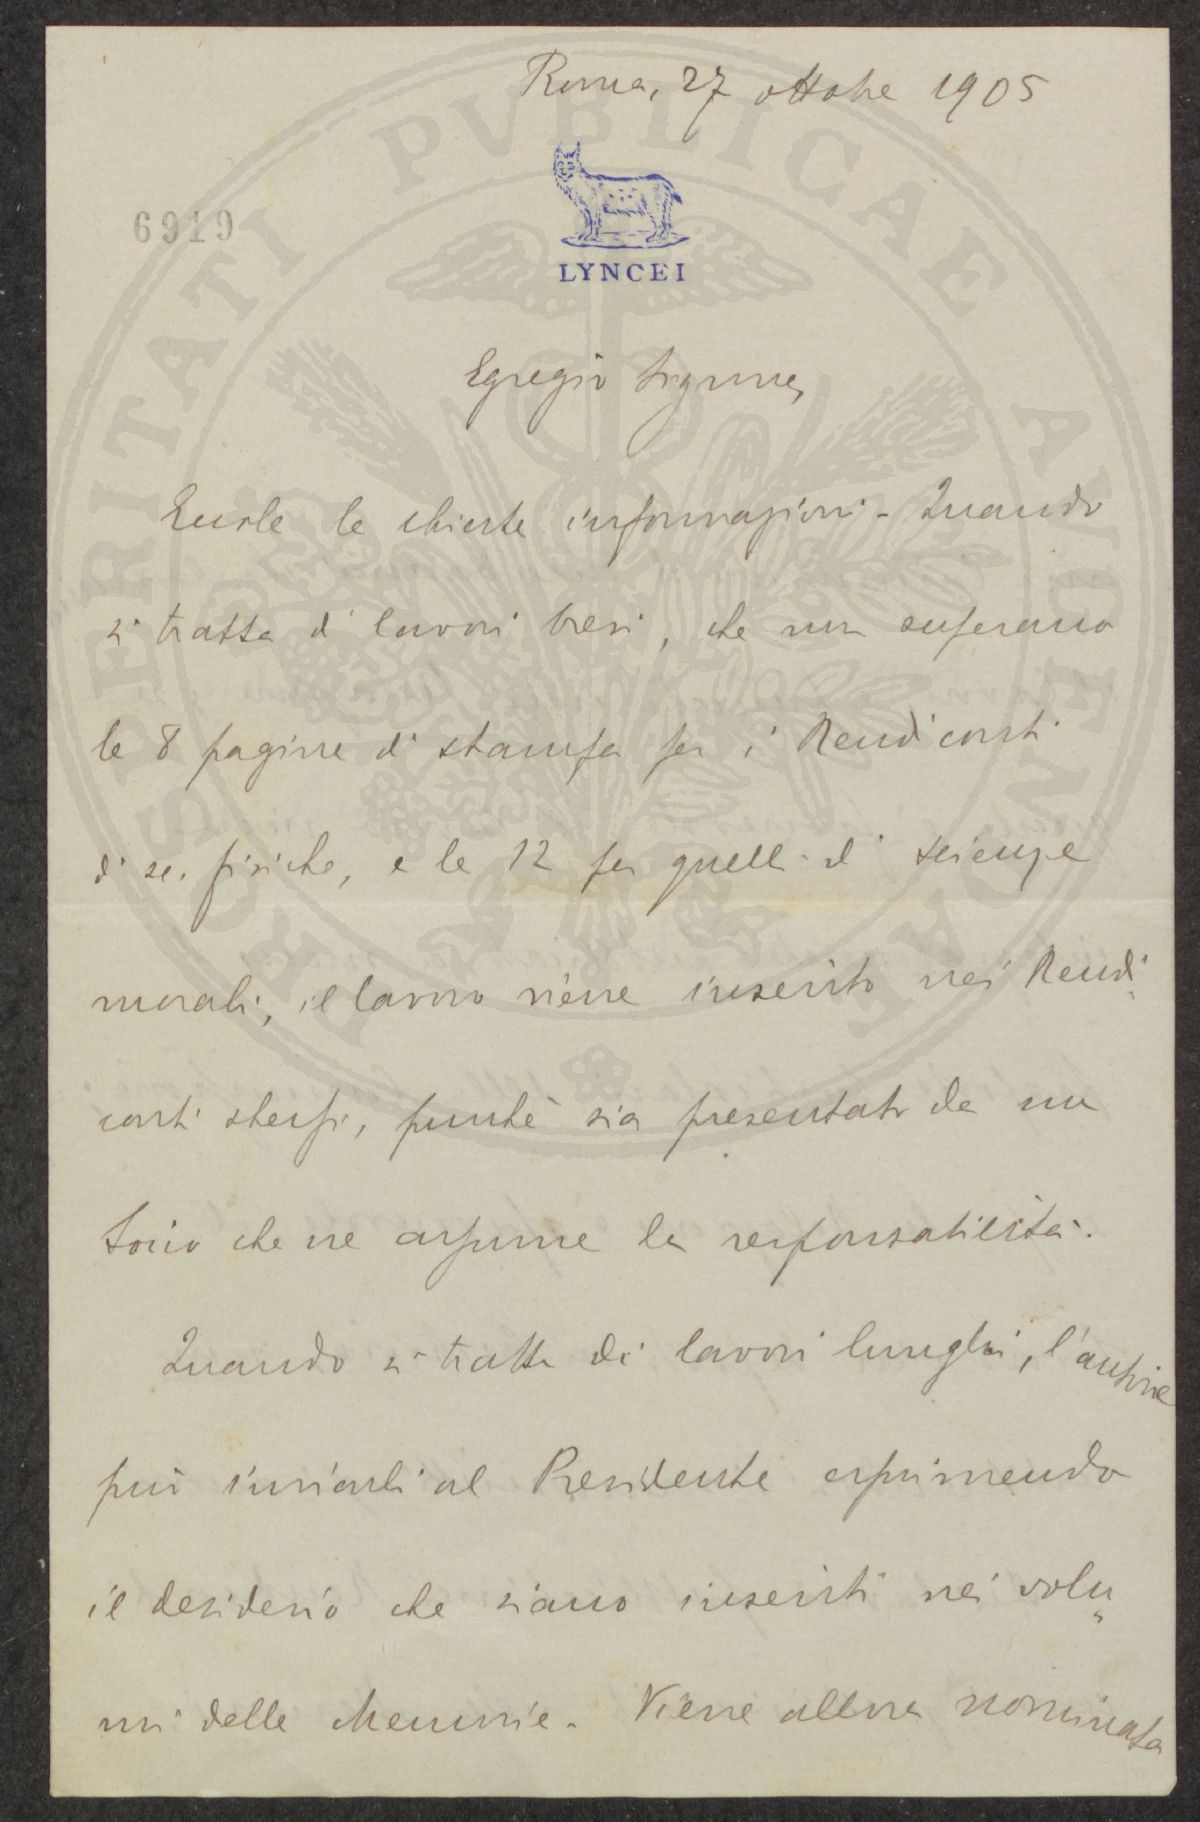 Roma, 27 ottobre 1905
6919
LYNCEI
PROSPERITATI PVBLICAE AVGENDAE
Egregio Signore,
Eccole le chieste informazioni - Quando
si tratta di lavori brevi, che non superano
le 8 pagine di stampa per i Rendiconti
di sc. fisiche, e le 12 per quelli di scienze
morali, il lavoro viene inserito nei Rendi„
conti stessi, purchè sia presentato da un
Socio che ne assume la responsabilità.
Quando si tratta di lavori lunghi, l'autore
può inviarli al Presidente esprimendo
il desiderio che siano inseriti nei volu„
mi delle Memorie. Viene allora nominata